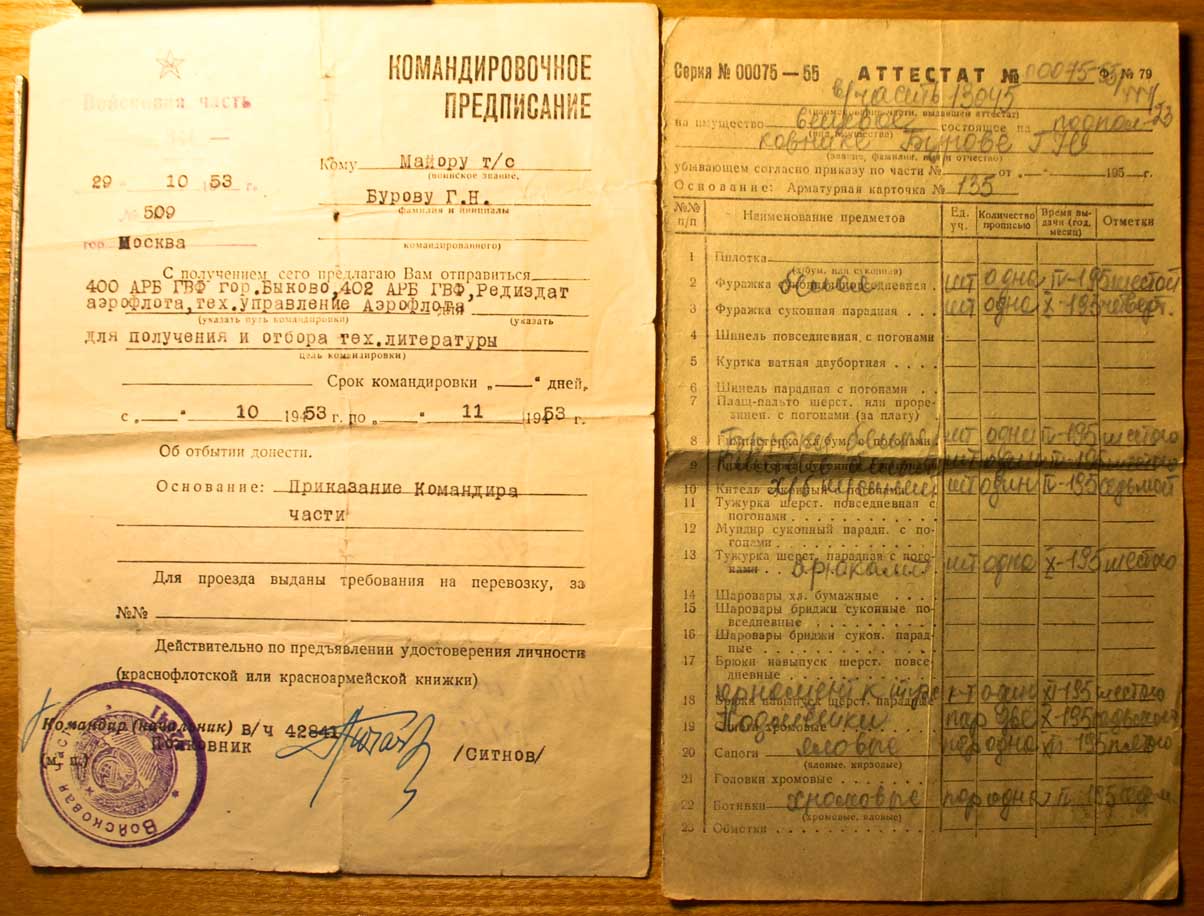 КОМАНДИРОВОЧНОЕ
ПРЕДПИСАНИЕ
Войсковая часть
29 " 10 1953 г.
№ 509
гор. Москва
Кому Майору т/с
(воинское звание,
Бурову Г.Н.
фамилия и инициалы
командированного)
С получением сего предлагаю Вам отправиться
400 АРБ ГВФ гор.Быково,402 АРБ ГВФ,Редиздат
аэрофлота,тех.управление Аэрофлота
(указать путь командировки) (указать
для получения и отбора тех.литературы
цель командировки)
Срок командировки „ — " дней,
с „ — " 10 1953 г. по „ — " 11 1953 г.
Об отбытии донести.
Основание: Приказание Командира
части
Для проезда выданы требования на перевозку, за
№№
Действительно по предъявлении удостоверения личности
(краснофлотской или красноармейской книжки)
Командир (начальник) В/Ч 42841
Полковник
(м. п.) /СИТНОВ/
Войсковая часть
Серия № 00075—55 АТТЕСТАТ № 00075-55 Ф. № 79
в/часть 13045
(наименование части, выдавшей аттестат)
на имущество вещевое состоящее на подпол-
(вид имущества)
ковнике Бурове Г Н
(звание, фамилия, имя и отчество)
убывающем согласно приказу по части № от „ - " 195 г.
Основание: Арматурная карточка № 135
№№ п/п Наименование предметов Ед. уч. Количество прописью Время выдачи (год, месяц) Отметки
1 Пилотка
(х/бум. или суконная)
2 Фуражка повседневная шт одна IV-195 шестой
3 Фуражка суконная парадная шт одна X-195 четверт.
4 Шинель повседневная, с погонами
5 Куртка ватная двубортная
6 Шинель парадная с погонами
7 Плащ-пальто шерст. или проре-
зинен. с погонами (за плату)
8 Гимнастерка хл.бум. с погонами шт одна IV-195 шестого
9 шт IV-195 шестого
10 Китель суконный с погонами шт один IV-195 седьмой
11 Тужурка шерст. повседневная с
погонами
12 Мундир суконный парадн. с по-
гонами
13 Тужурка шерст. парадная с пого-
нами брюками шт одна X-195 шестого
14 Шаровары хл. бумажные
15 Шаровары бриджи суконные по-
вседневные
16 Шаровары бриджи сукон. парад-
ные
17 Брюки навыпуск шерст. повсе-
дневные
18 Брюки навыпуск шерст. парадные орнамент к туж к-т один XI-195 шестого
19 Сапоги хромовые Подшивки пар две X-195
20 Сапоги яловые пар одна XI-195 пятого
(яловые, кирзовые)
21 Головки хромовые
22 Ботинки хромовые пар одна IV-195
(хромовые, яловые)
23 Обмотки